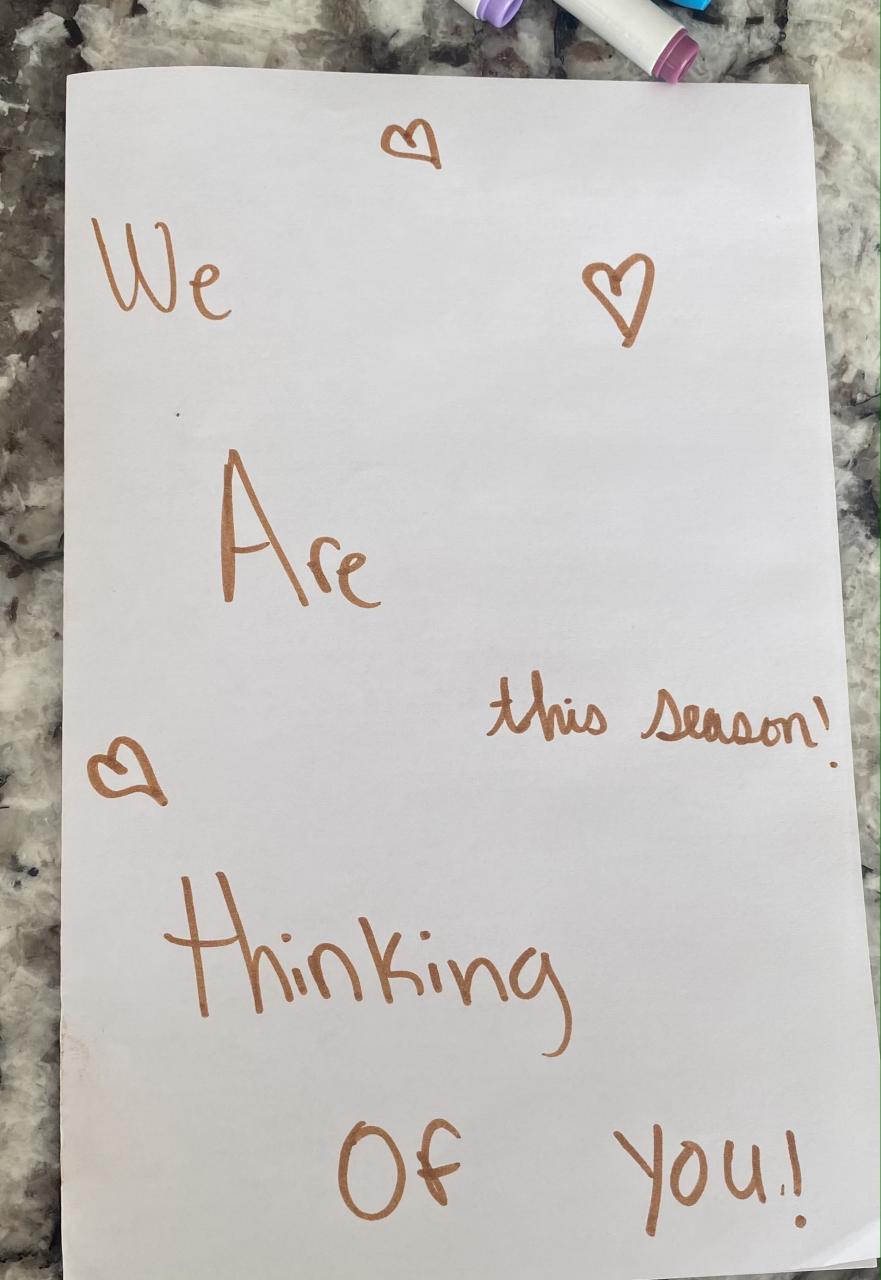 We
Are
this season!
thinking
Of you!